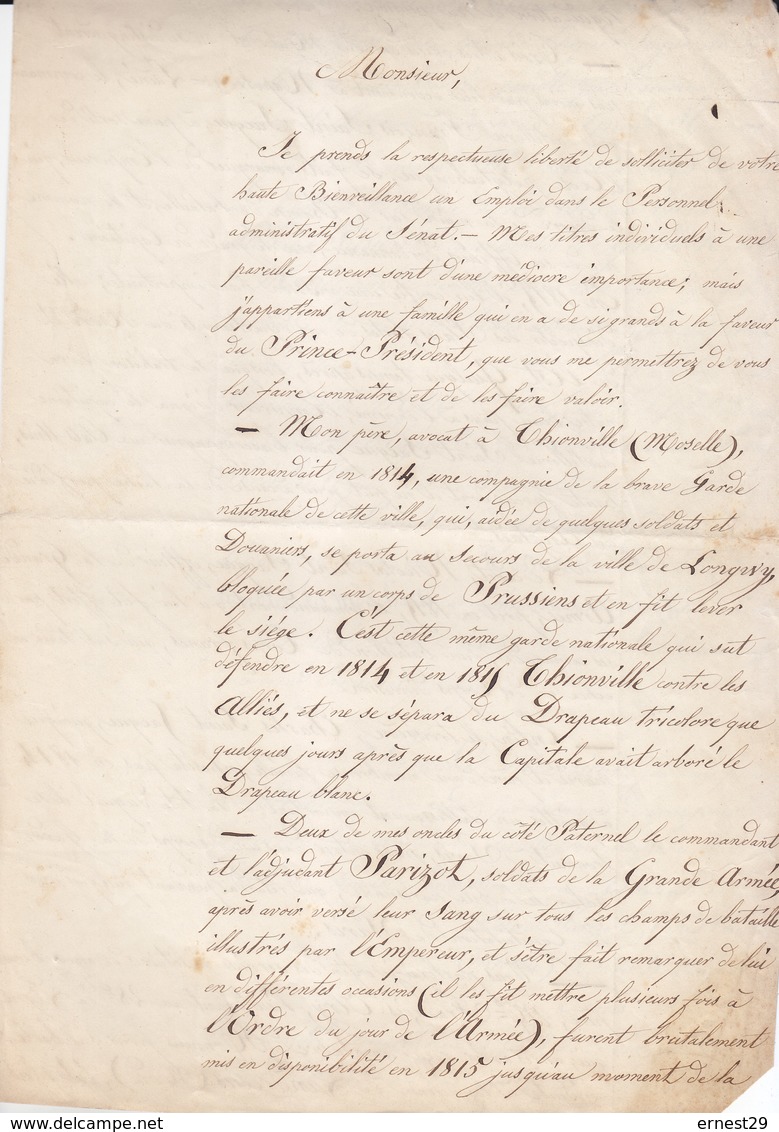 Monsieur,
Je prends la respectueuse liberté de solliciter de votre
haute Bienveillance un Emploi dans le Personnel
administratif du Sénat. — Mes titres individuels à une
pareille faveur sont d'une médiocre importance; mais
j'appartiens à une famille qui en a de si grands à la faveur
du Prince-Président, que vous me permettrez de vous
les faire connaître et de les faire valoir.
— Mon père, avocat à Thionville (Moselle),
commandait en 1814, une compagnie de la brave Garde
nationale de cette ville, qui, aidée de quelques soldats et
Douaniers, se porta au secours de la ville de Longwy
bloquée par un corps de Prussiens et en fit lever
le siége. C'est cette même garde nationale qui sut
défendre en 1814 et en 1815 Thionville contre les
Alliés, et ne se sépara du Drapeau tricolore que
quelques jours après que la Capitale avait arboré le
Drapeau blanc.
— Deux de mes oncles du côté Paternel le commandant
et l'adjudant Parizot, soldats de la Grande Armée,
après avoir versé leur Sang sur tous les champs de bataille
illustrés par l'Empereur, et s'être fait remarquer de lui
en différentes occasions (il les fit mettre plusieurs fois à
l'Ordre du jour de l'Armée), furent brutalement
mis en disponibilité en 1815 jusqu'au moment de la
ernest29